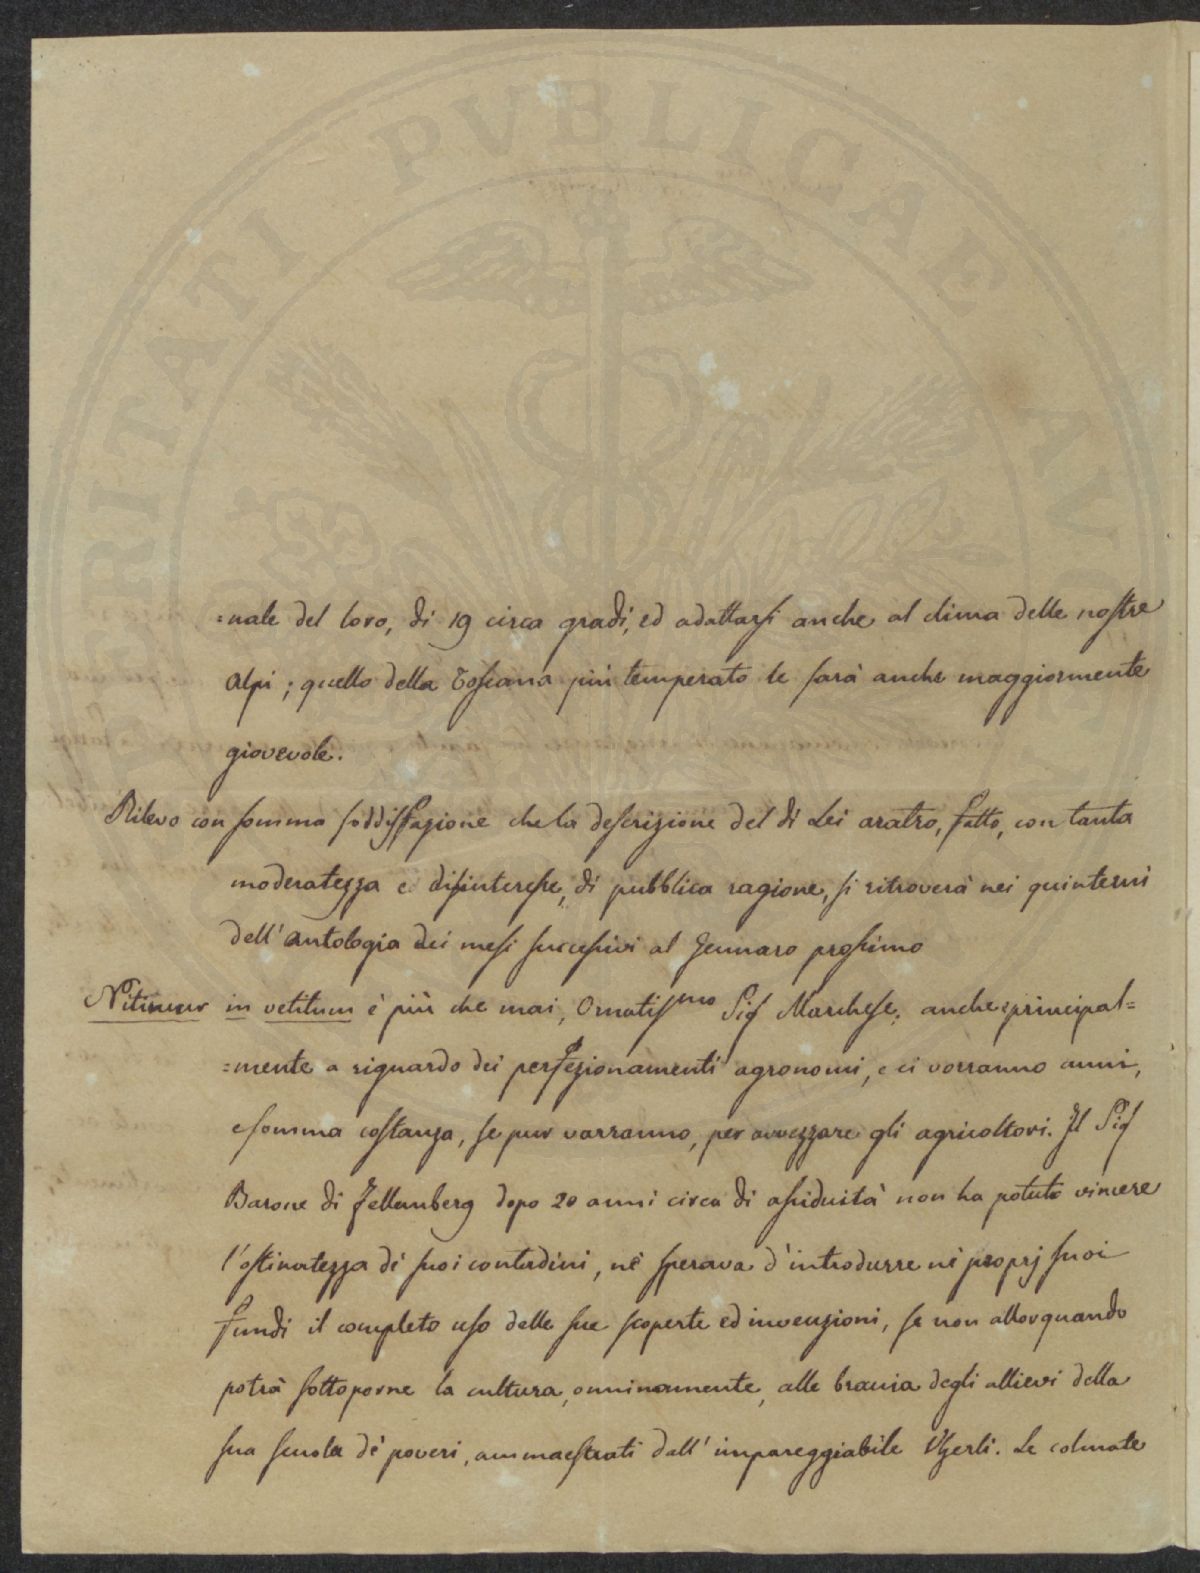 =nale del loro, di 19 circa gradi, ed adattarsi anche al clima delle nostre
Alpi; quello della Toscana più temperato le sarà anche maggiormente
giovevole.
Rilevo con somma soddisfazione che la descrizione del di Lei aratro, fatto, con tanta
moderatezza e disinteresse, di pubblica ragione, si ritroverà nei quinterni
dell'Antologia dei mesi successivi al Gennaro prossimo
Nitimur in vetitum è più che mai, Ornatissmo Sig Marchese, anche principal=
=mente a riguardo dei perfezionamenti agronomi, e ci vorranno anni,
e somma costanza, se pur varranno, per avvezzare gli agricoltori. Il Sig
Barone di Fellenberg dopo 20 anni circa di assiduità non ha potuto vincere
l'ostinatezza di suoi contadini, nè sperava d'introdurre nè proprj suoi
fundi il completo uso delle sue scoperte ed invenzioni, se non allorquando
potrà sottoporne la cultura, onninamente, alle braccia degli allievi della
sua scuola de' poveri, ammaestrati dall'impareggiabile Vherli. Le colmate
VTILITATI PVBLICAE